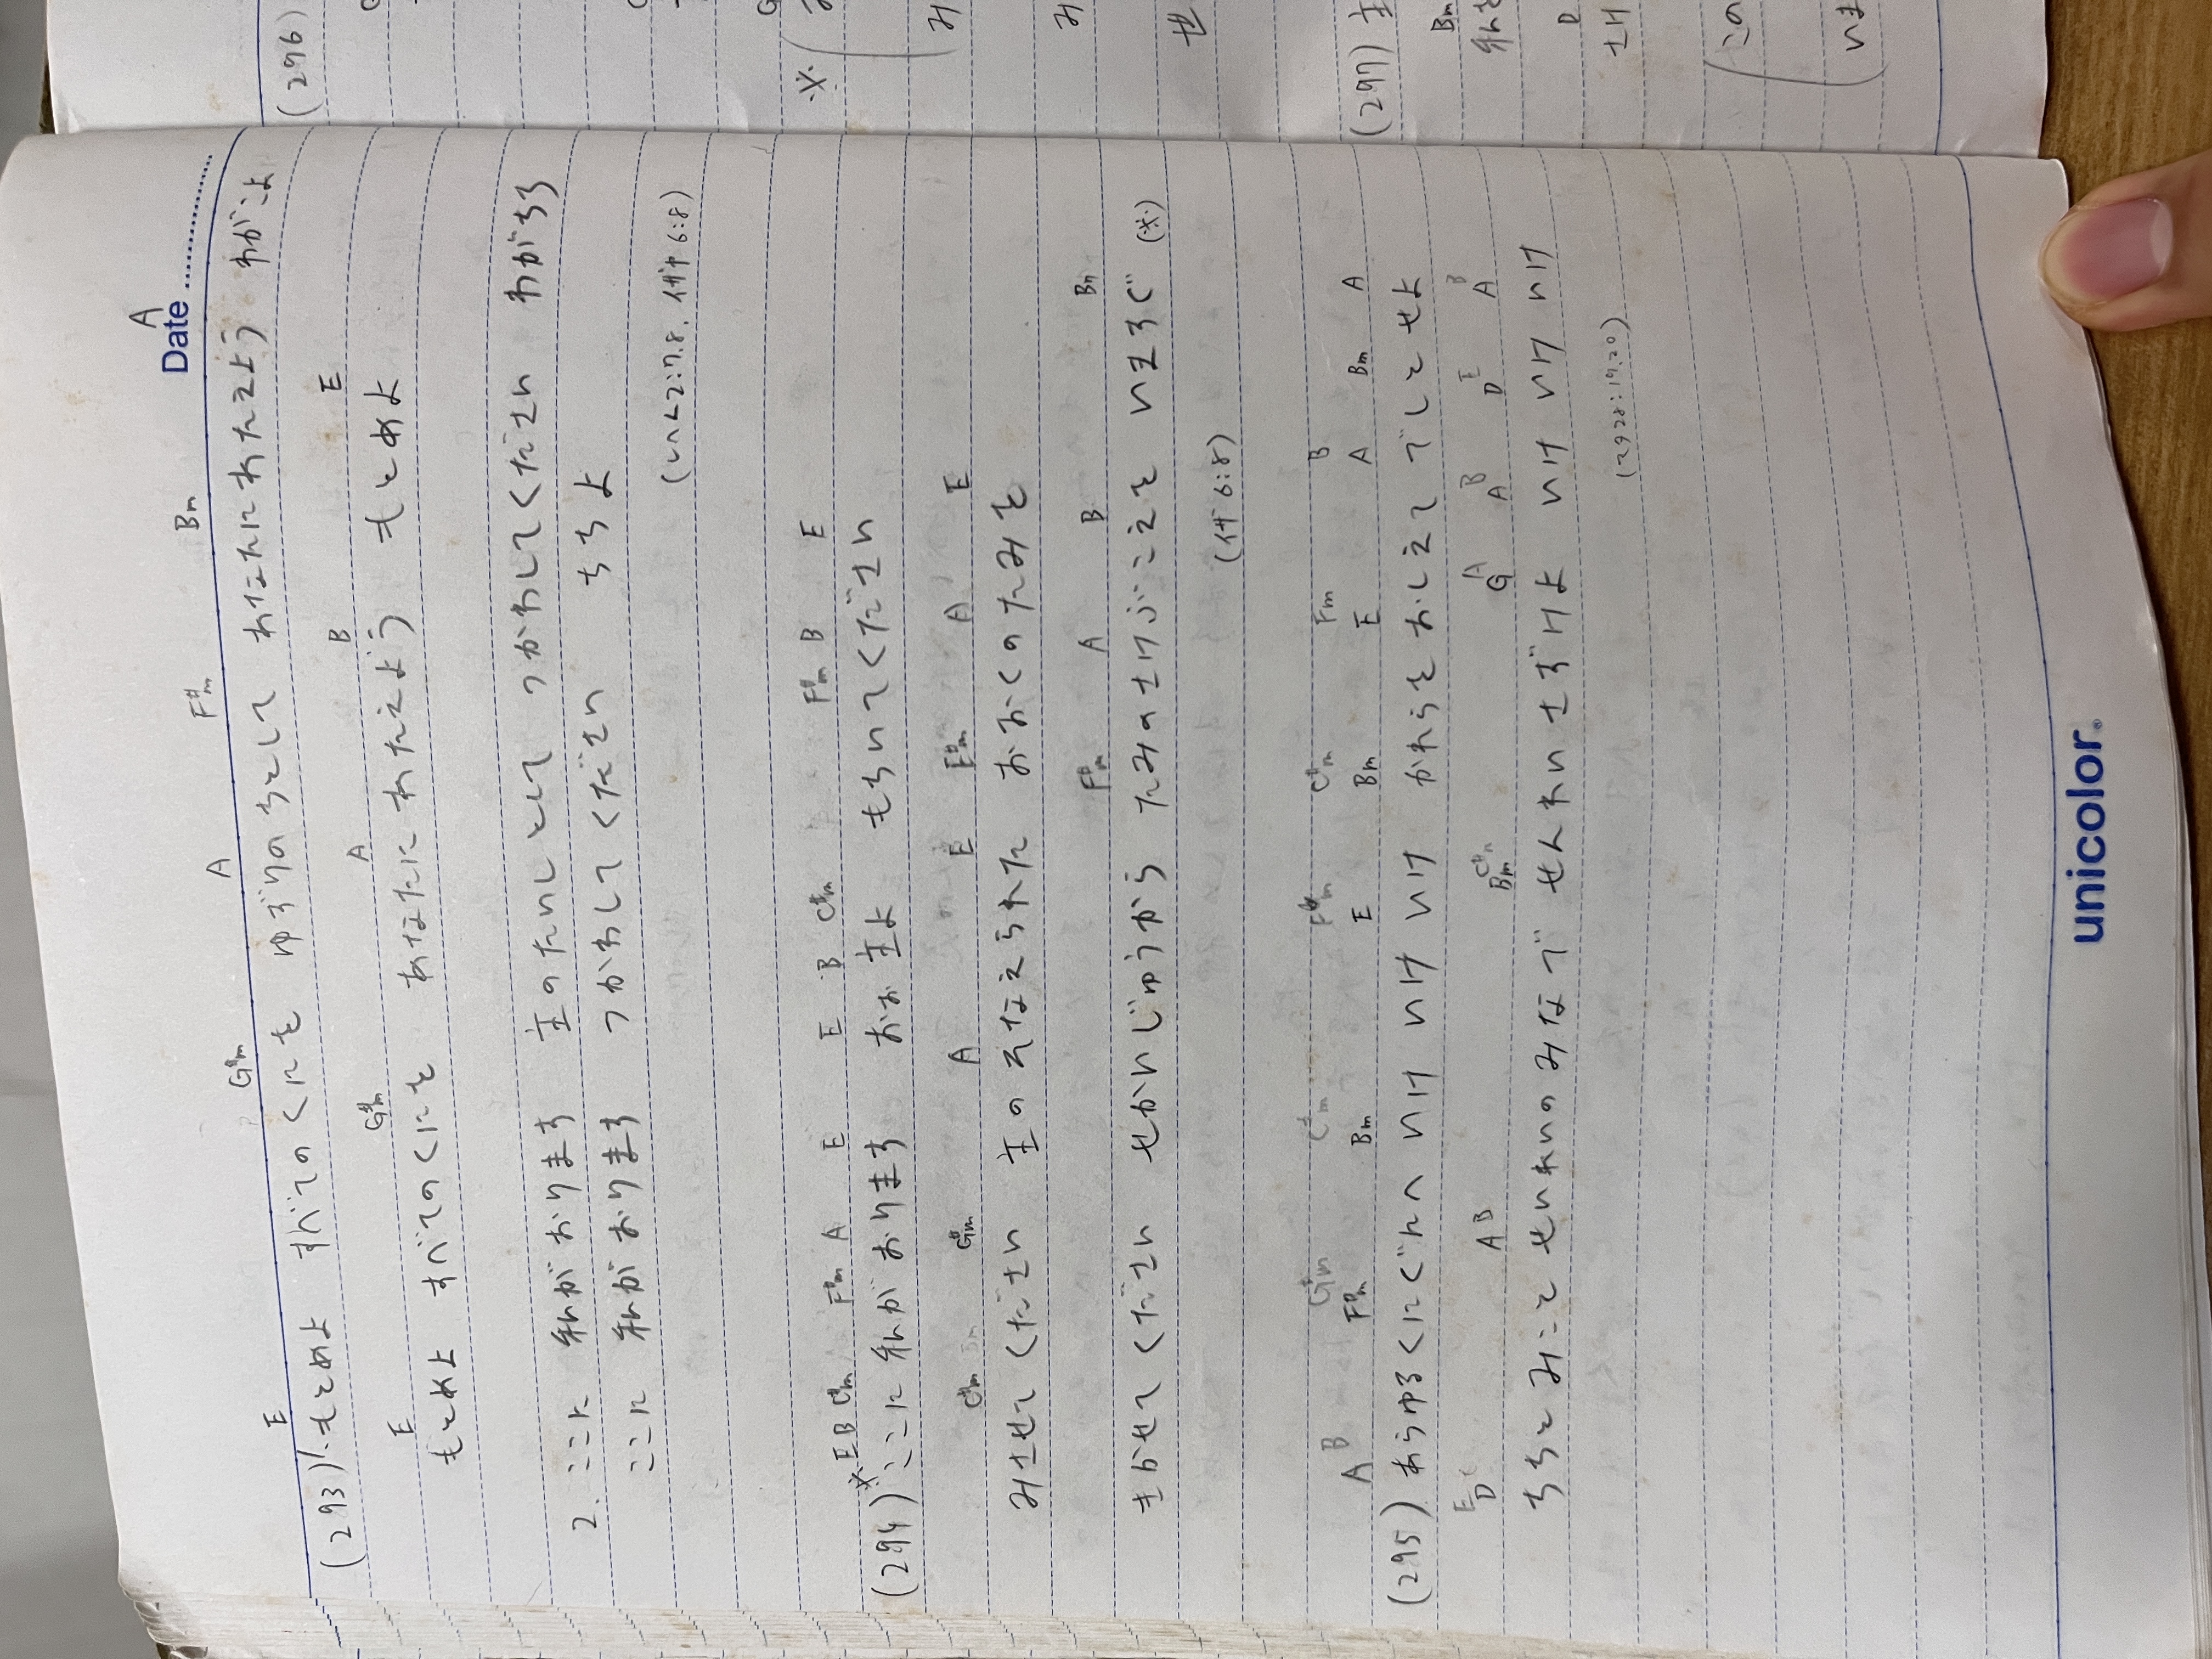 Date
A
E G#m A F#m Bm
(293) 1. もとめよ すべてのくにを ゆずりのちとして あなたにあたえよう わがこよ
E G#m A B E
もとめよ すべてのくにを あなたにあたえよう もとめよ
2. ここに 私がおります 主のたいしとして つかわしてください わがちち
ここに 私がおります つかわしてください ちちよ
(しへん2:7.8, イザヤ6:8)
※ E B C#m F#m A E E B C#m F#m B E
(294) ここに私がおります おお主よ もちいてください
C#m G#m A E F#m A E
みさせてください 主のそなえられた おおくのたみを
F#m A B Bm
きかせてください せかいじゅうから たみのさけぶこえを いますぐ (※)
(イザ6:8)
B G#m C#m F#m C#m Fm B
A F#m Bm E Bm E A Bm A
(295) あらゆるくにぐにへ いけ いけ いけ かれらをおしえて でしとせよ
E C A B C#m A B E B
D Bm G A D A
ちちとみこと せいれいのみなで せんれいさずけよ いけ いけ いけ
(マタ28:19.20)
unicolor
(296)
※
み
み
せ
(297) 主
Bm
私を
D
さけ
この
いま